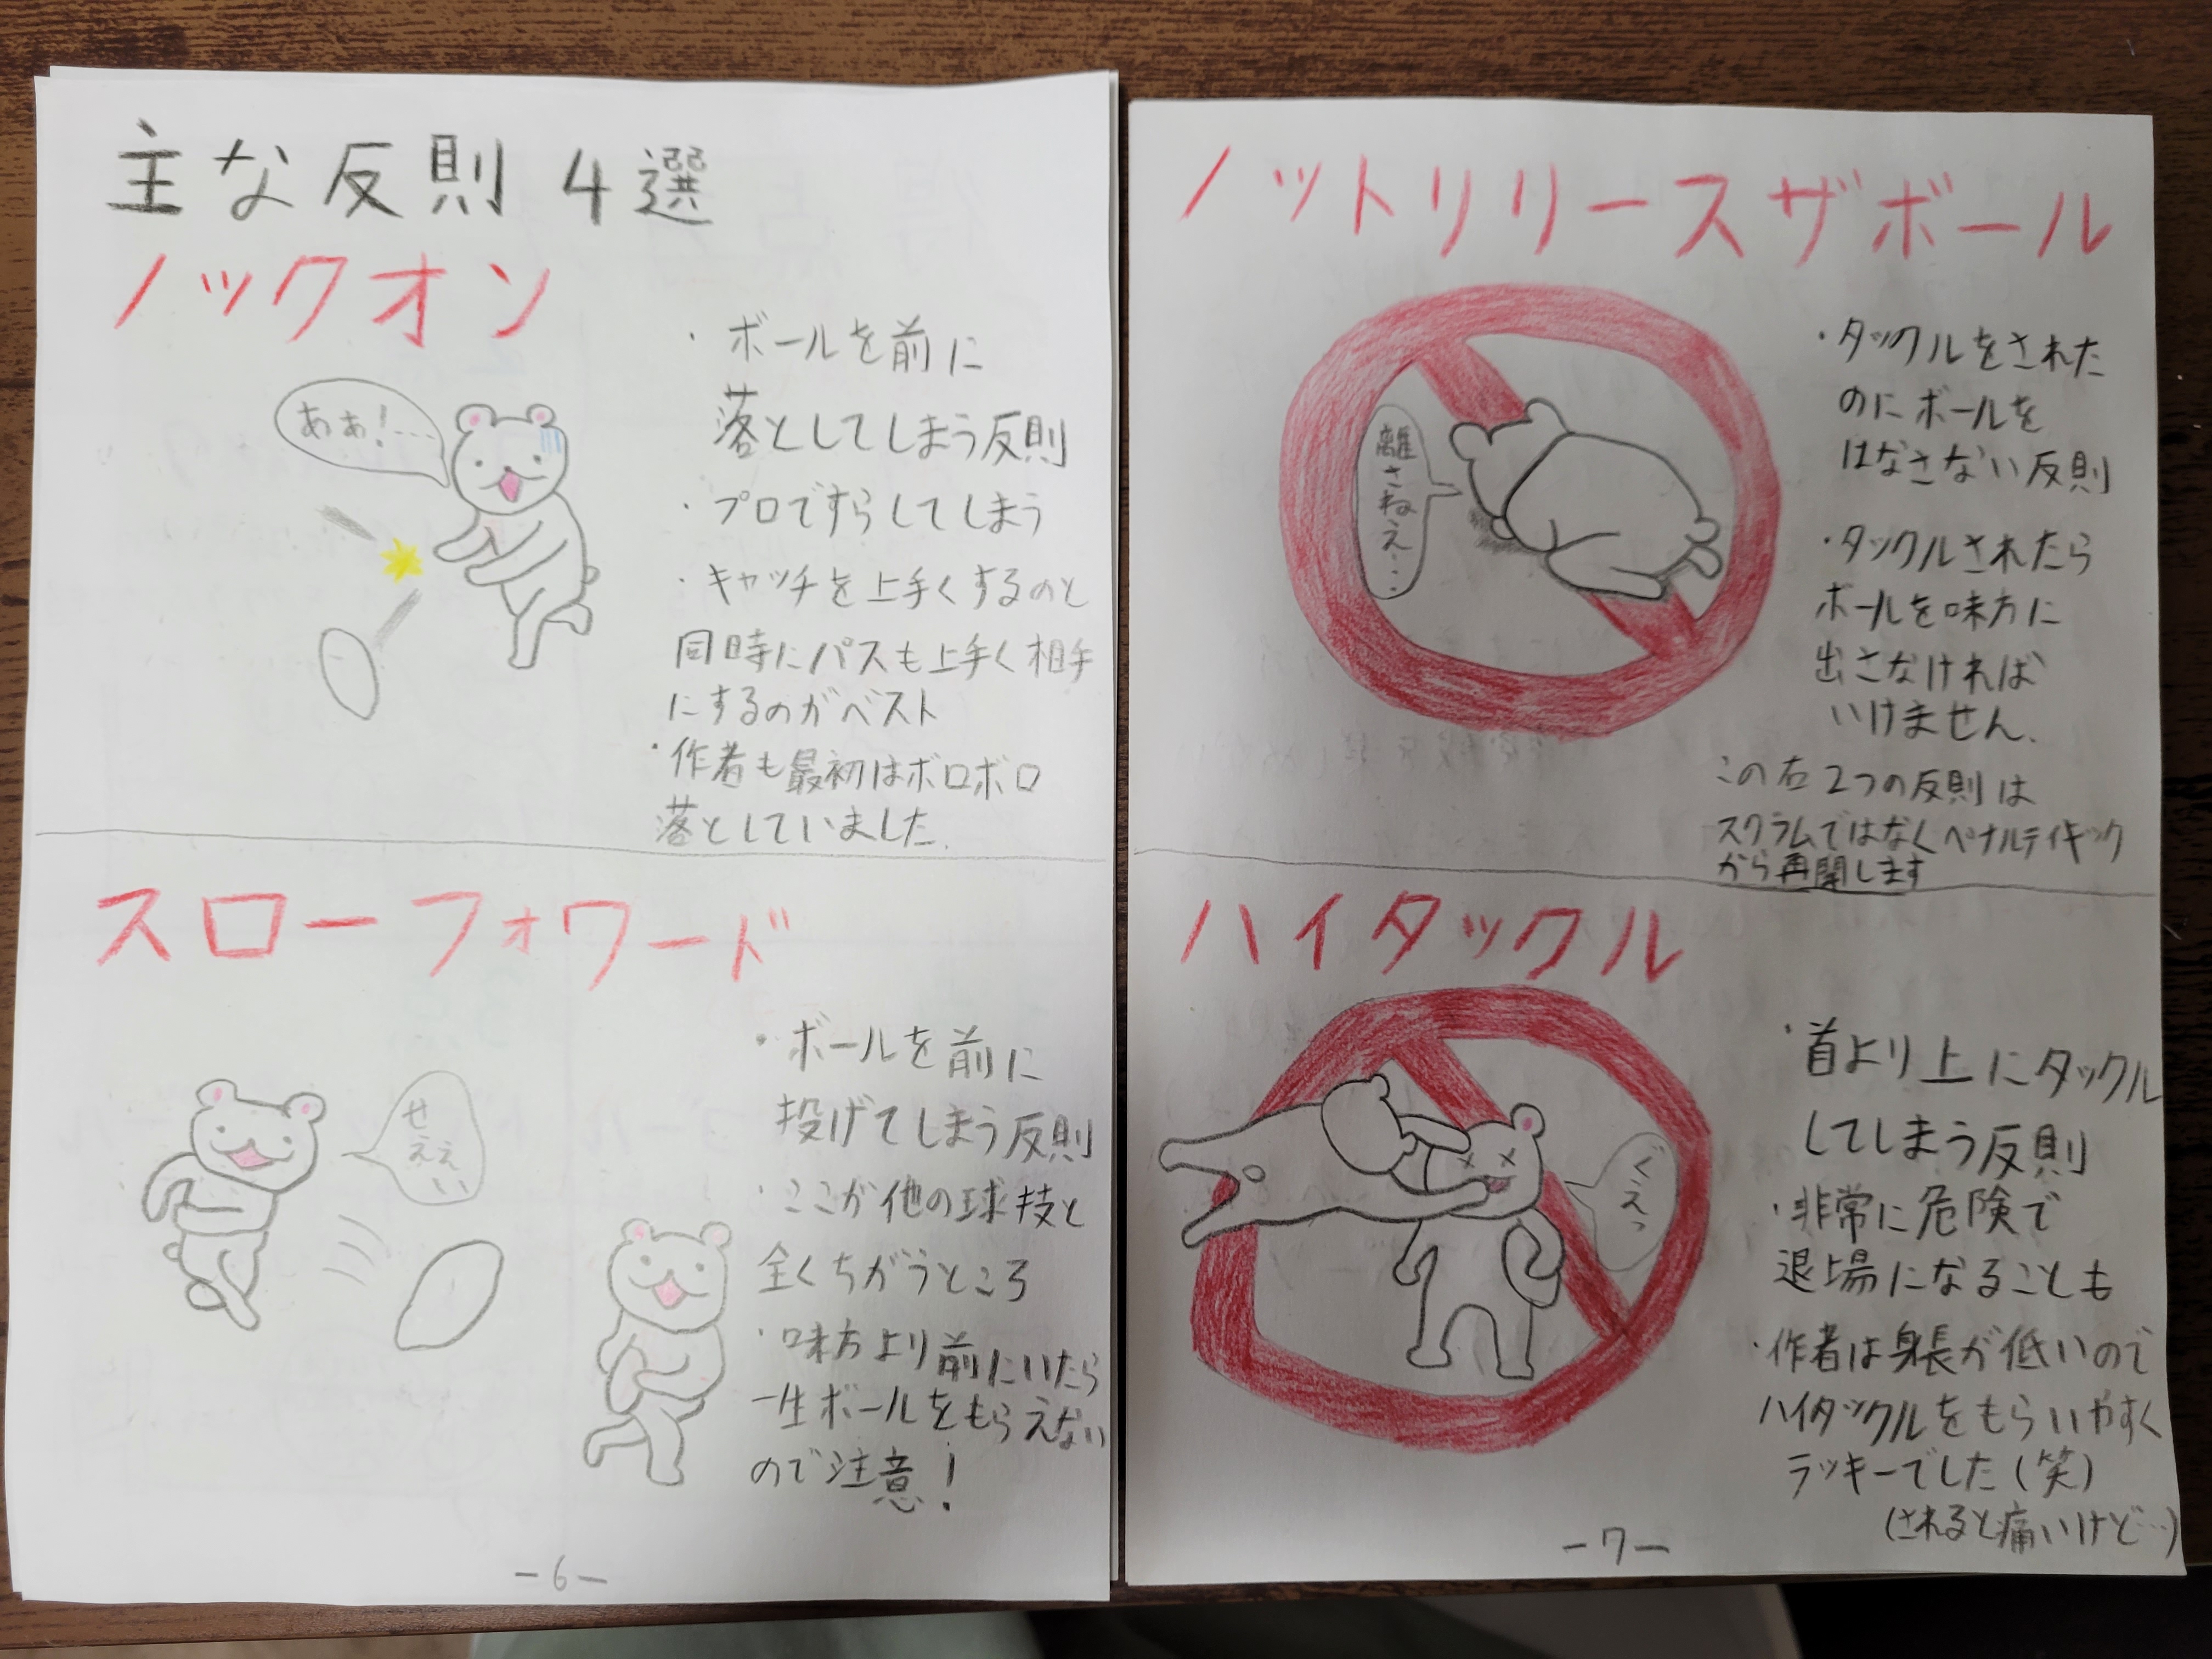 主な反則4選
ノックオン
ああ!…
・ボールを前に
落としてしまう反則
・プロですらしてしまう
・キャッチを上手くするのと
同時にパスも上手く相手
にするのがベスト
・作者も最初はボロボロ
落としていました.
スローフォワード
せぇぇい
・ボールを前に
投げてしまう反則
・ここが他の球技と
全くちがうところ
・味方より前にいたら
一生ボールをもらえない
ので注意!
-6-
ノットリリースザボール
離さねえ…
・タックルをされた
のにボールを
はなさない反則
・タックルされたら
ボールを味方に
出さなければ
いけません.
この右2つの反則は
スクラムではなくペナルティキック
から再開します
ハイタックル
ぐえっ
・首より上にタックル
してしまう反則
・非常に危険で
退場になることも
・作者は身長が低いので
ハイタックルをもらいやすく
ラッキーでした(笑)
(されると痛いけど…)
-7-